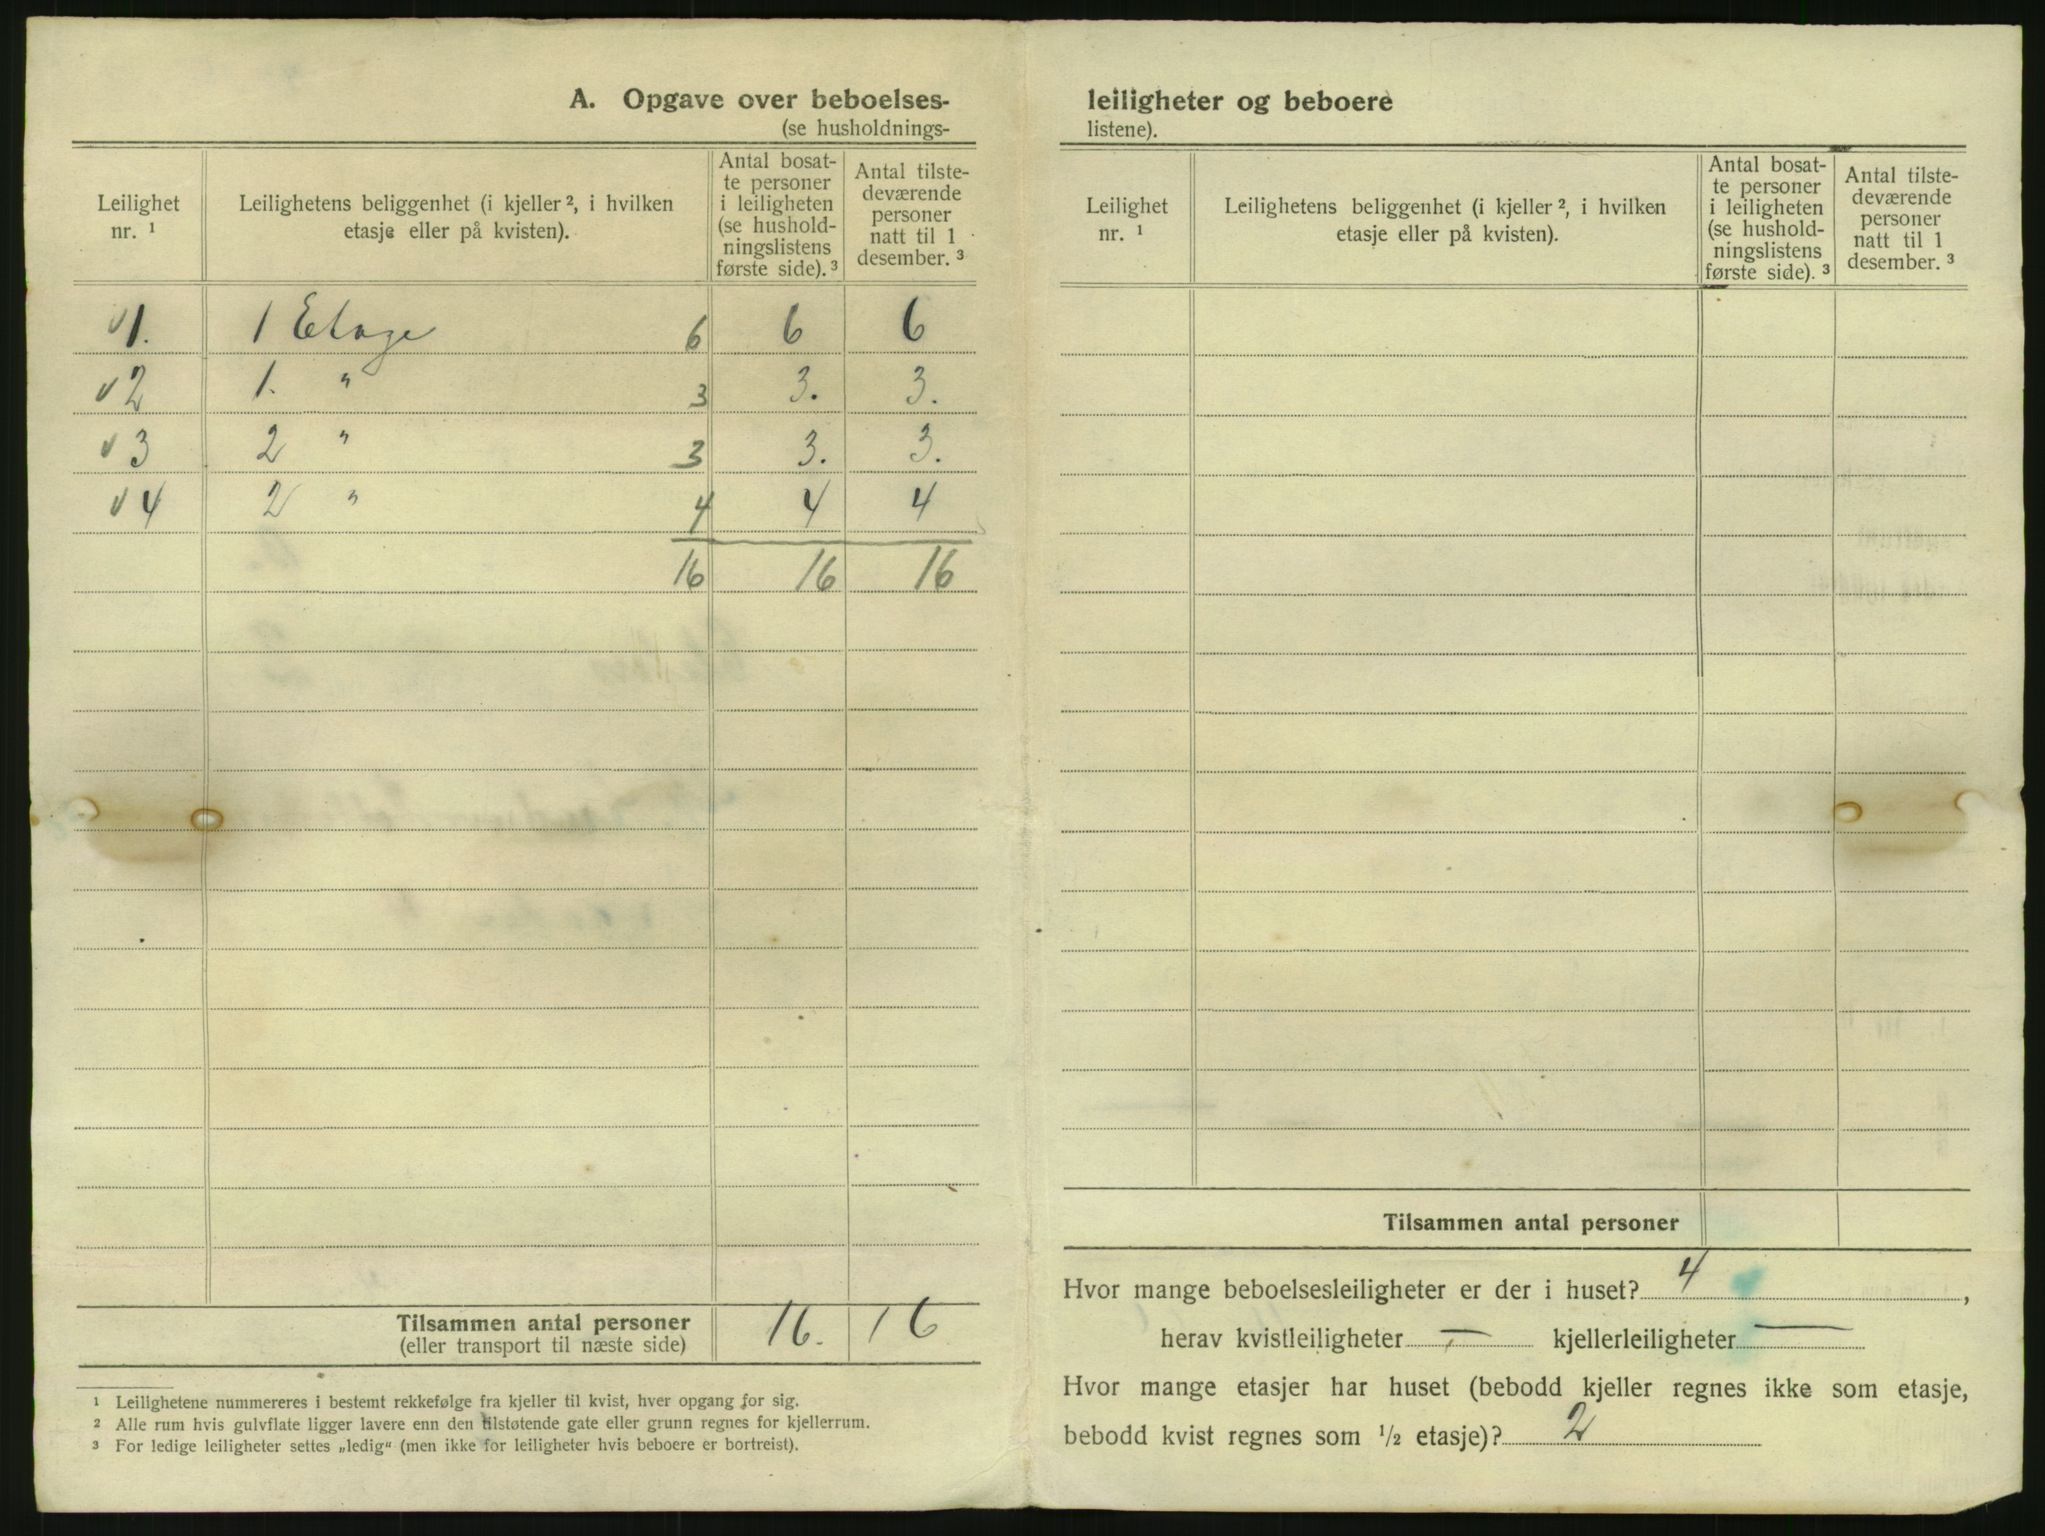 A. Opgave over beboelses-
(se husholdnings-
Leilighet nr. ¹
Leilighetens beliggenhet (i kjeller ², i hvilken etasje eller på kvisten).
Antal bosat-
te personer
i leiligheten
(se hushold-
ningslistens
første side). ³
Antal tilste-
deværende
personer
natt til 1
desember. ³
√ 1. 1 Etage 6 6 6
√ 2 1. " 3 3. 3.
√ 3 2 " 3 3. 3.
√ 4 2 " 4 4 4
16 16 16
Tilsammen antal personer 16. 16
(eller transport til næste side)
¹ Leilighetene nummereres i bestemt rekkefølge fra kjeller til kvist, hver opgang for sig.
² Alle rum hvis gulvflate ligger lavere enn den tilstøtende gate eller grunn regnes for kjellerrum.
³ For ledige leiligheter settes „ledig“ (men ikke for leiligheter hvis beboere er bortreist).
leiligheter og beboere
listene).
Leilighet nr. ¹
Leilighetens beliggenhet (i kjeller ², i hvilken etasje eller på kvisten).
Antal bosat-
te personer
i leiligheten
(se hushold-
ningslistens
første side). ³
Antal tilste-
deværende
personer
natt til 1
desember. ³
Tilsammen antal personer
Hvor mange beboelsesleiligheter er der i huset? 4,
herav kvistleiligheter — kjellerleiligheter —
Hvor mange etasjer har huset (bebodd kjeller regnes ikke som etasje,
bebodd kvist regnes som ½ etasje)? 2